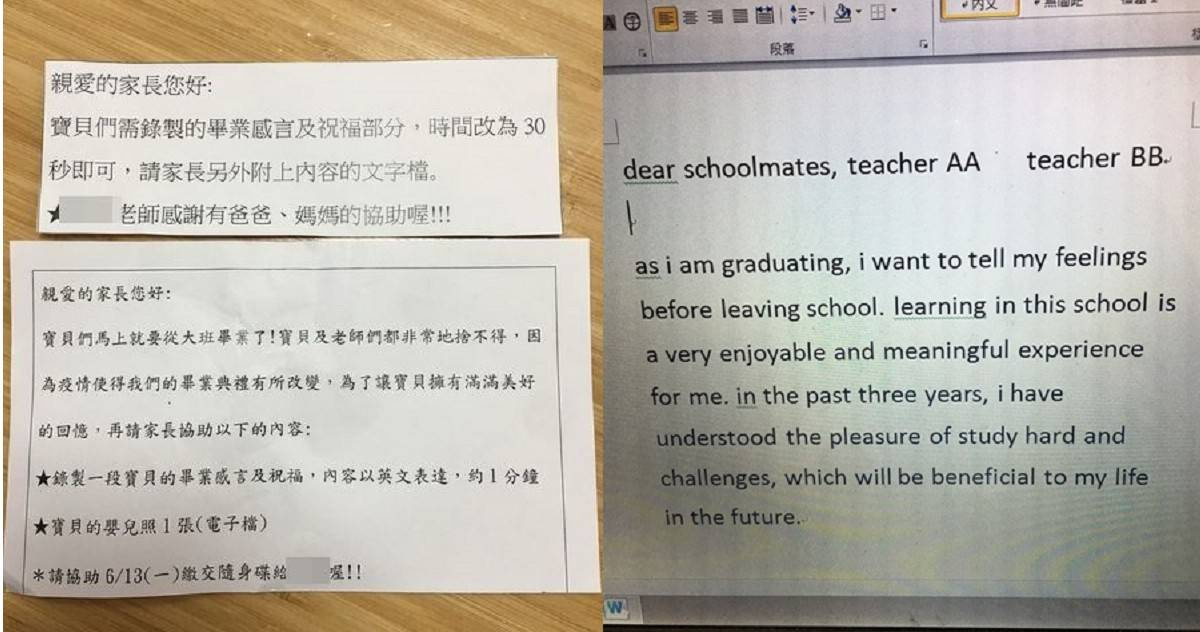 親愛的家長您好:
寶貝們需錄製的畢業感言及祝福部分，時間改為 30
秒即可，請家長另外附上內容的文字檔。
★ 老師感謝有爸爸、媽媽的協助喔!!!
親愛的家長您好:
寶貝們馬上就要從大班畢業了!寶貝及老師們都非常地捨不得，因
為疫情使得我們的畢業典禮有所改變，為了讓寶貝擁有滿滿美好
的回憶，再請家長協助以下的內容:
★錄製一段寶貝的畢業感言及祝福，內容以英文表達，約 1 分鐘
★寶貝的嬰兒照 1 張(電子檔)
＊請協助 6/13(一)繳交隨身碟給 喔!!
段落
dear schoolmates, teacher AA teacher BB
as i am graduating, i want to tell my feelings
before leaving school. learning in this school is
a very enjoyable and meaningful experience
for me. in the past three years, i have
understood the pleasure of study hard and
challenges, which will be beneficial to my life
in the future.